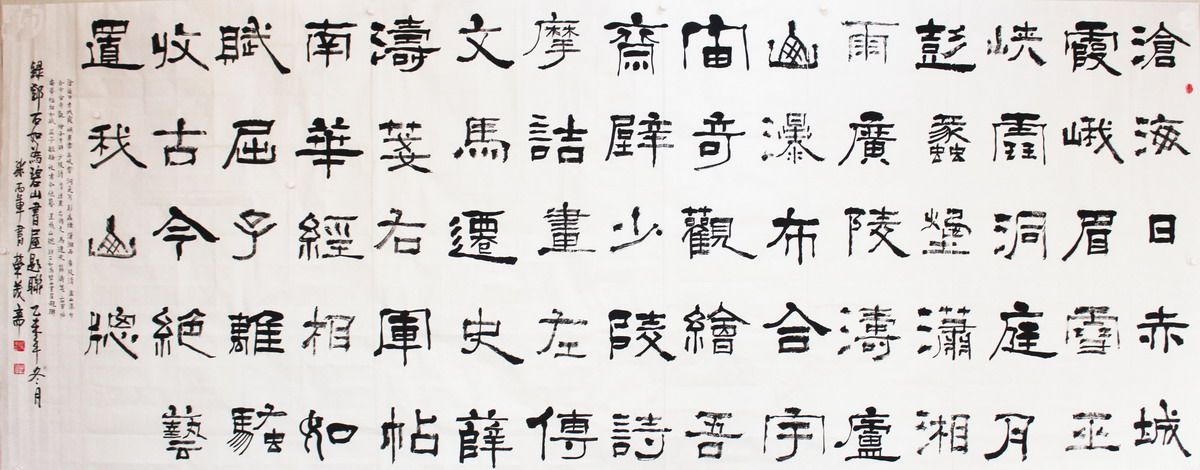 滄海日赤城
霞峨眉雪巫
峽雲洞庭月
彭蠡煙瀟湘
雨廣陵濤廬
山瀑布合宇
宙奇觀繪吾
齋壁少陵詩
摩詰畫左傳
文馬遷史薛
濤箋右軍帖
南華經相如
賦屈子離騷
收古今絕藝
置我山窗
錄鄧石如為碧山書屋題聯 乙未年冬月